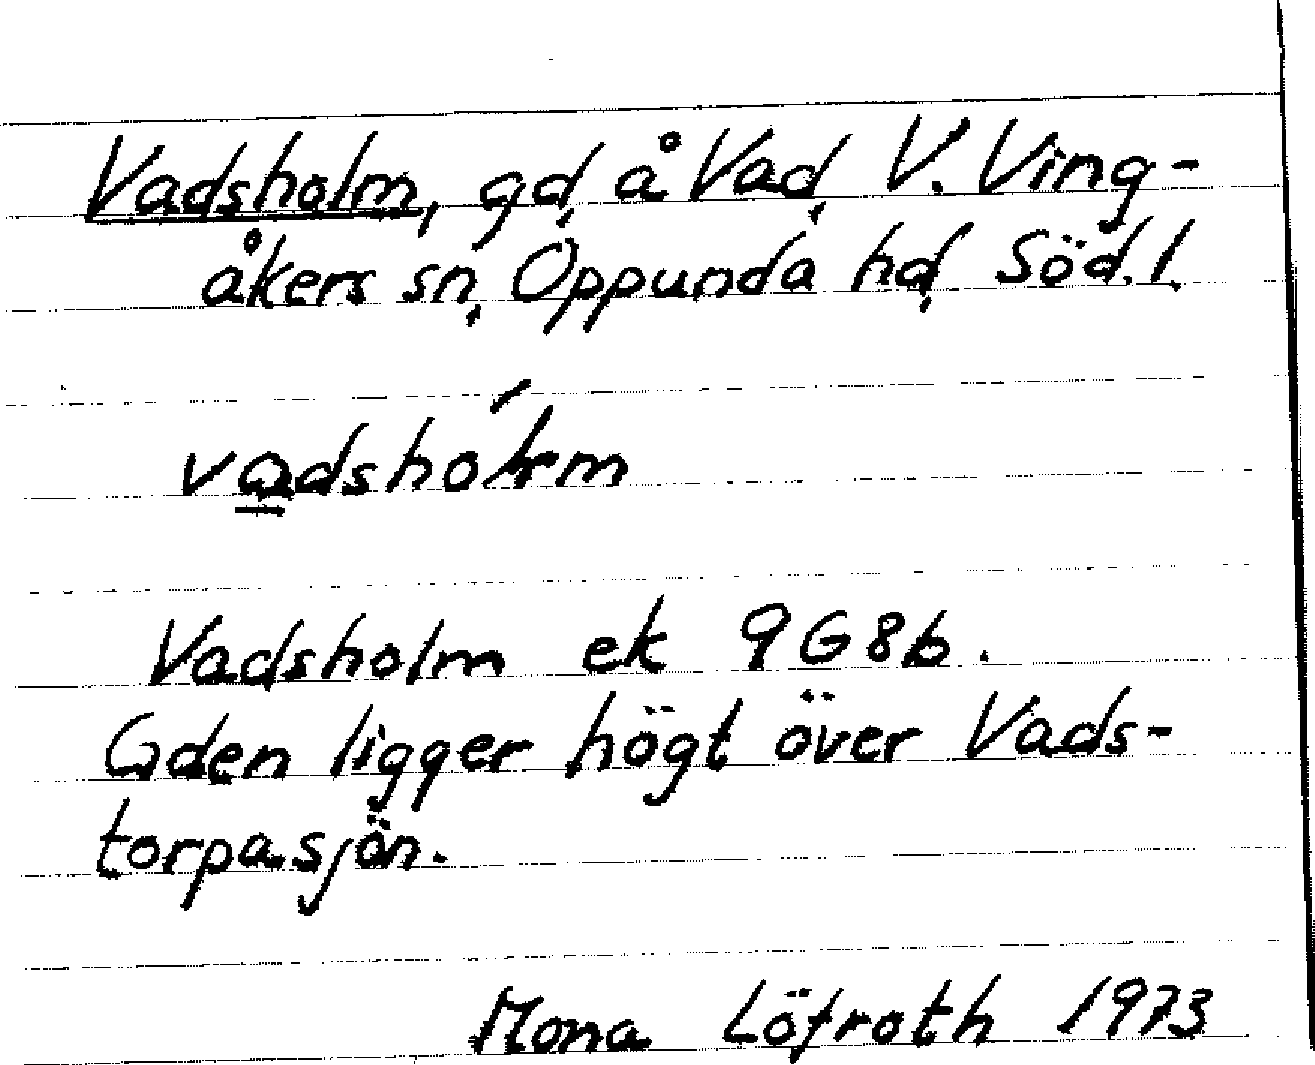 Vadsholm, gd, å Vad, V. Ving-
åkers sn, Oppunda hd, Söd. l.
vadshólm
Vadsholm ek 9G8b.
Gden ligger högt över Vads-
torpasjön.
Mona Löfroth 1973